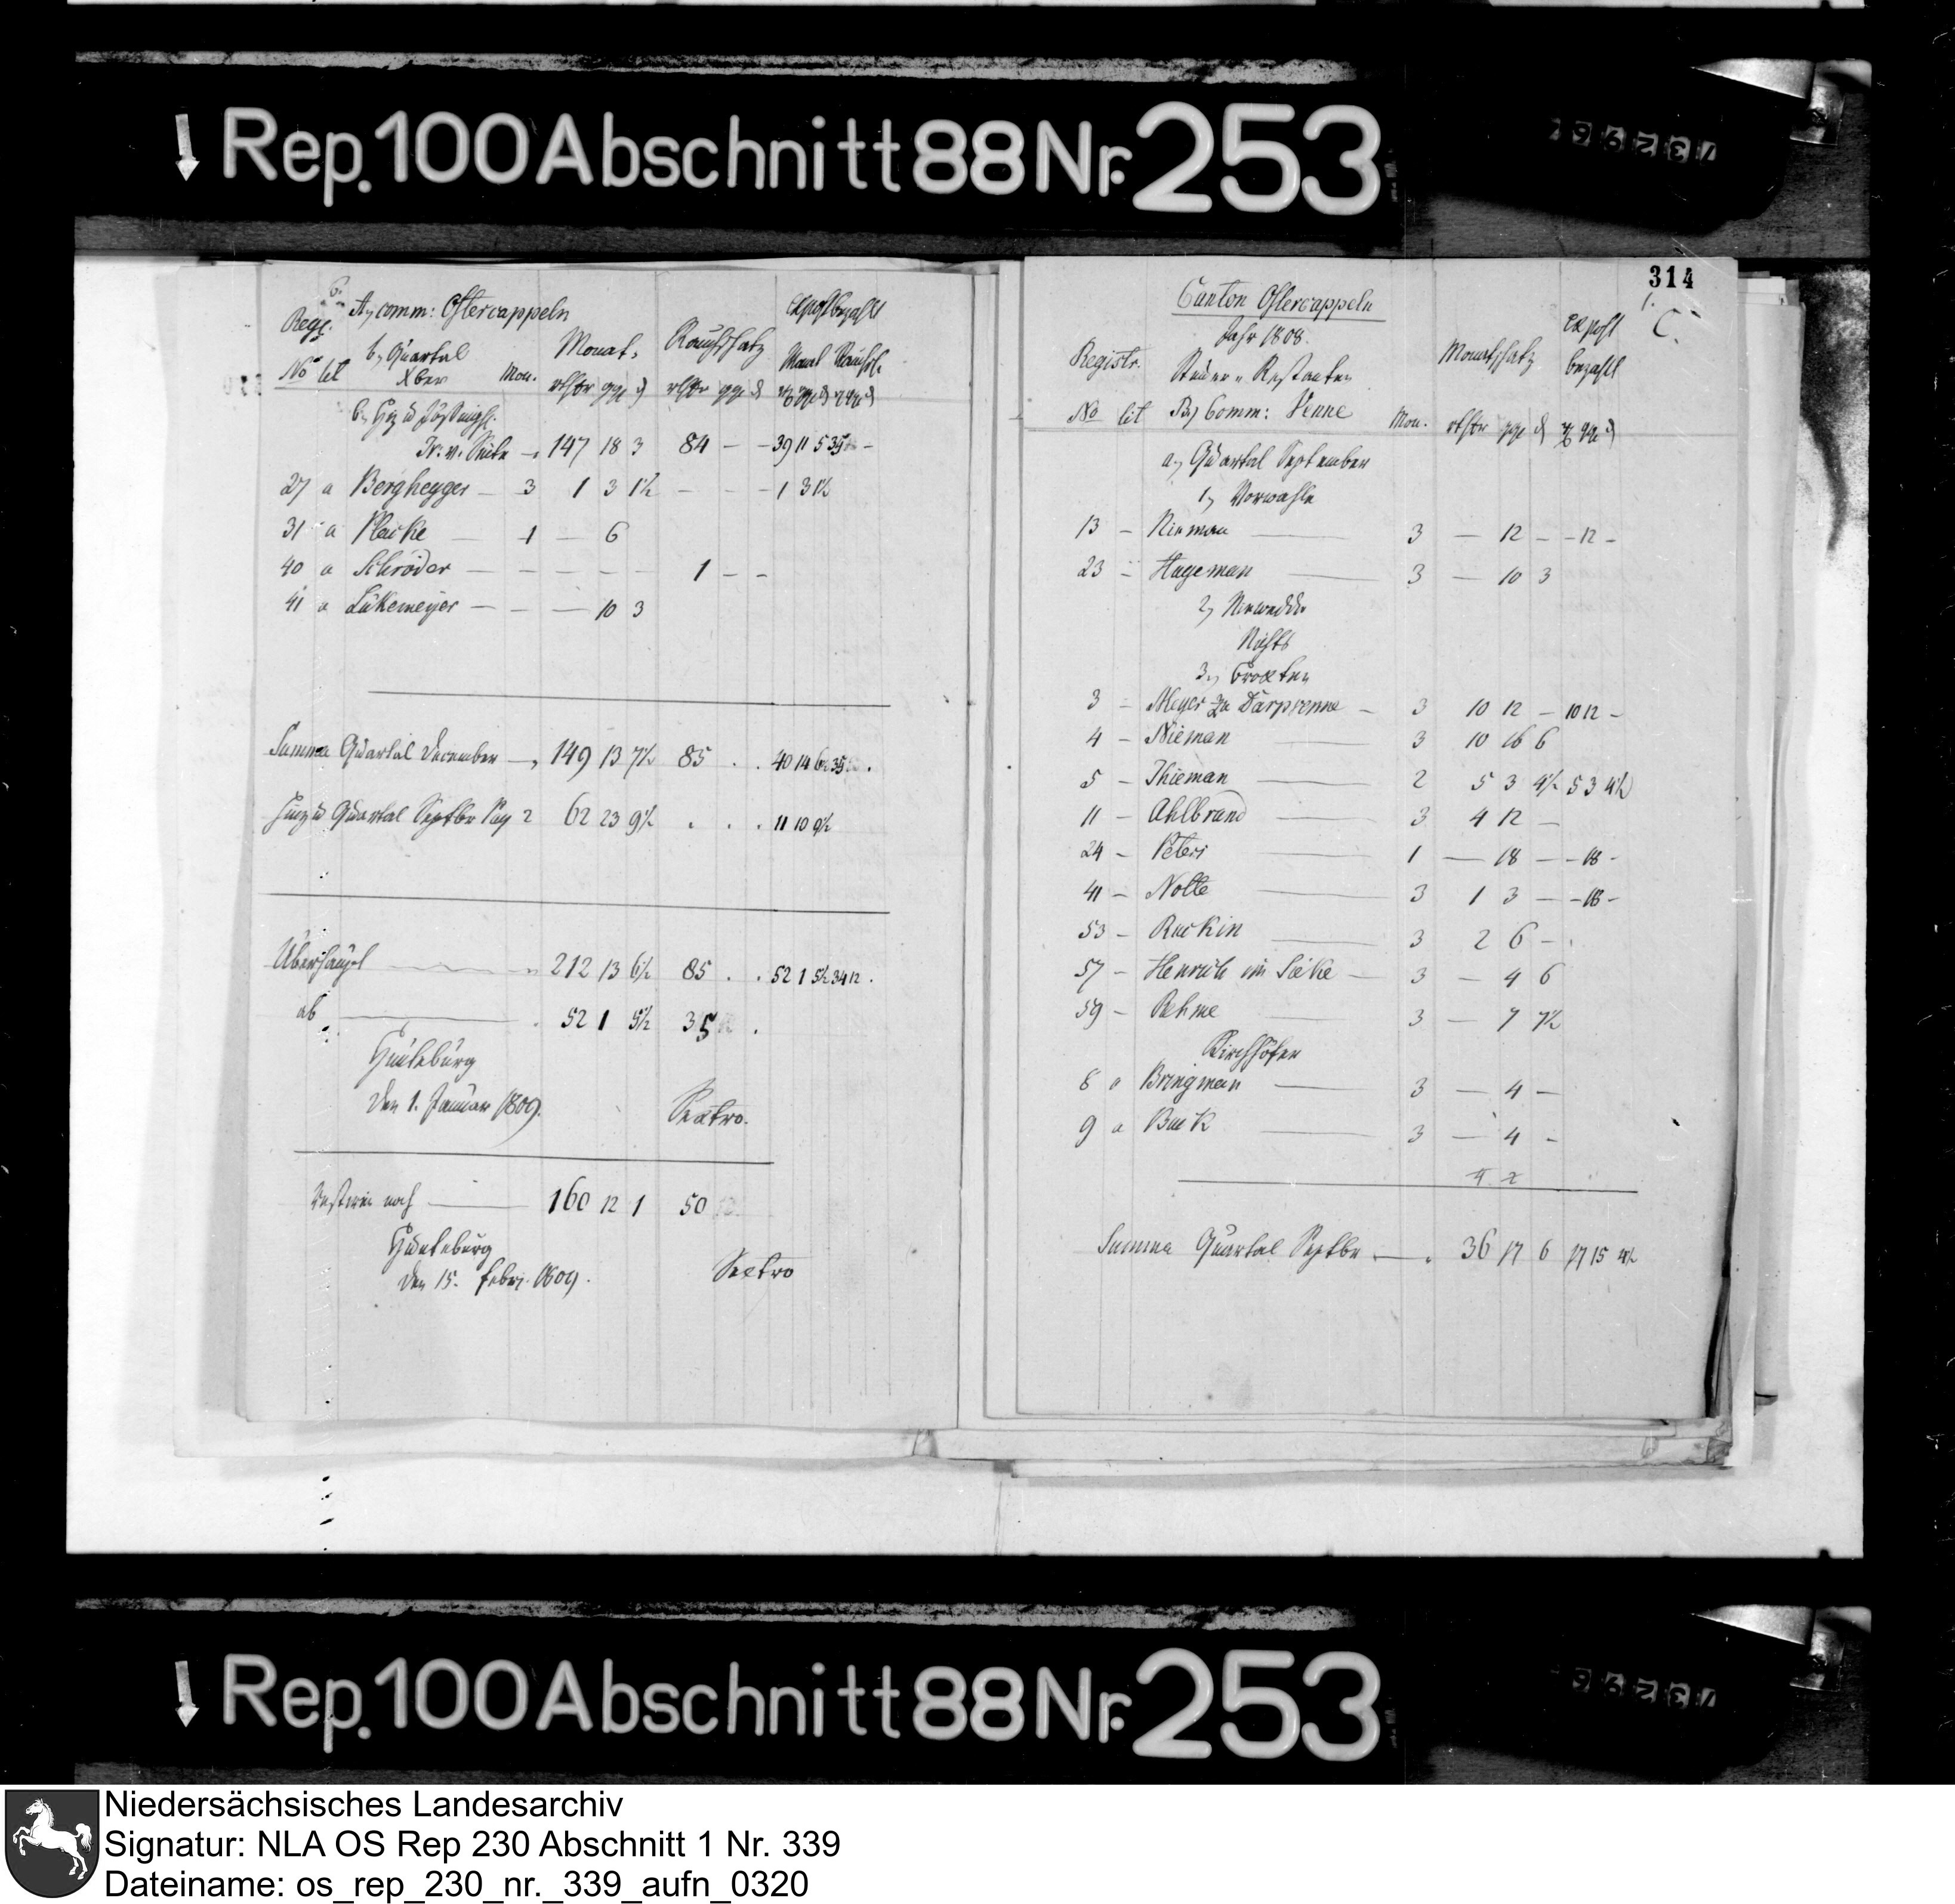 Rep. 100 Abschnitt 88 Nr. 253
6.
A, comm: Ostercappeln
Regr. b, Quartal Monat. Rauchschatz
No lit Xber Mon. rthlr ggr d rthlr ggr d
147 18 3 84 - - 39 11 5 35 -
27 a Berghegger - 3 1 3 1½ - - - 1 3 1½
31 a Placke - 1 - 6
40 a Schröder - - - - - 1 - -
41 a Lükemeyer - - - 10 3
Summa Quartal December - 149 13 7½ 85 . . 40 14 6½ 35 .
Quartal Septbr Pag 2 62 23 9½ . . . 11 10 9½
Überhaupt 212 13 6½ 85 . . 52 1 5½ 34 12 .
ab 52 1 5½ 35 .
Hünteburg
den 1. Januar 1809. Sextro.
Rest wie noch 160 12 1 50
Hünteburg
den 15. Febr. 1809. Sextro
314
Canton Ostercappeln
1. C.
Jahr 1808.
Registr. Steuer-Restanten Monatschatz bezahlt
No lit B, Comm: Venne Mon. rthlr ggr d
a, Quartal September
1, Vorwahle
13 - Nieman 3 - 12 - - 12 -
23 - Hageman 3 - 10 3
2, Niewedde
Nichts
3, Broxten
3 - Meyer zu Darpvenne - 3 10 12 - 10 12 -
4 - Nieman 3 10 16 6
5 - Thieman 2 5 3 4½ 5 3 4½
11 - Ahlbrand 3 4 12 -
24 - Peters 1 - 18 - - 18 -
41 - Nolte 3 1 3 - - 18 -
53 - Ruckin 3 2 6 -
57 - Henrich im Sieke - 3 - 4 6
59 - Rehme 3 - 7 7½
Kirchhöfer
8 a Bringman 3 - 4 -
9 a Buck 3 - 4 -
Summa Quartal Septbr - 36 17 6 17 15 4½
Rep. 100 Abschnitt 88 Nr. 253
Niedersächsisches Landesarchiv
Signatur: NLA OS Rep 230 Abschnitt 1 Nr. 339
Dateiname: os_rep_230_nr._339_aufn_0320